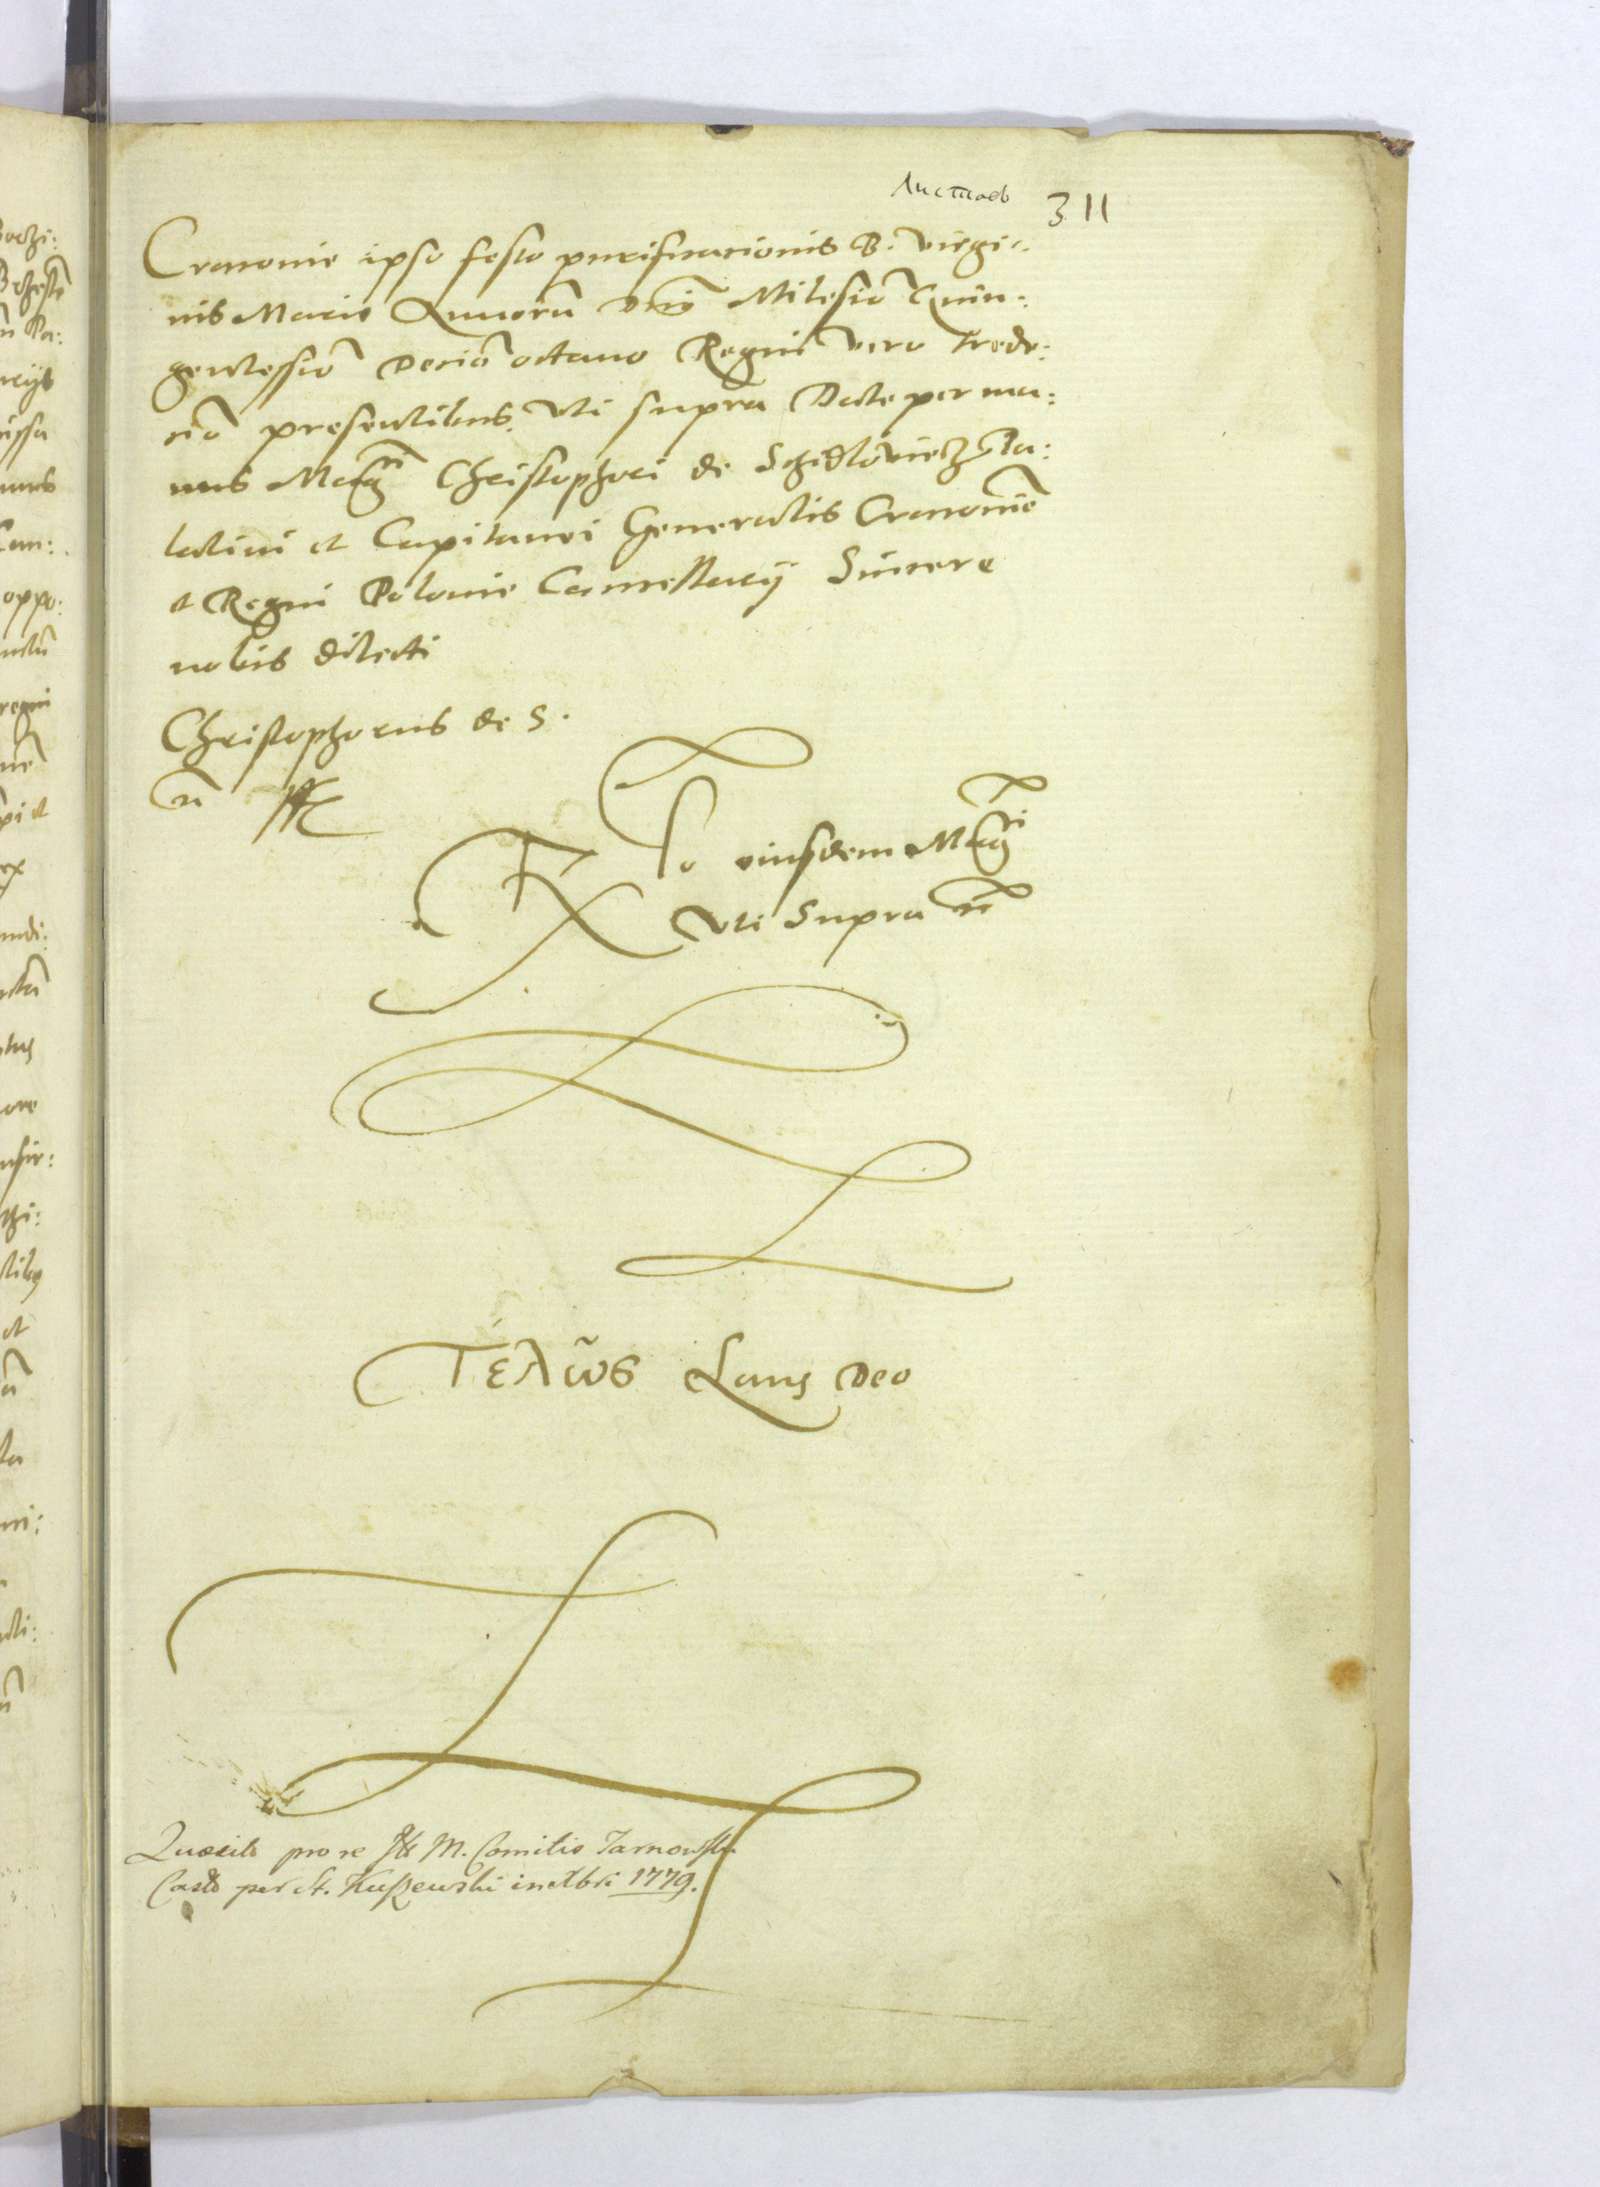 Листовъ 311
Cracovie ipso festo purificacionis B. virgi:
nis Marie Annorũ Dñi Milesiõ Quin:
gentessiõ Decio octavo Regni vero trede:
cio presentibus. Uti supra Date per ma:
nus Mag^ci Christophori de Schidlovietz Pa:
latini et Capitanei Generalis Cracovieñ
et Regni Polonie Cancellarij Sincere
nobis dilecti
Christophorus de S.
Rto eiusdem Mag^ci
Uti Supra
Τέλῶς Laus Deo
Quaesitũ pro re M. Comitis Tarnowski
Cast. per St. Kuszewski in Xbri 1779.